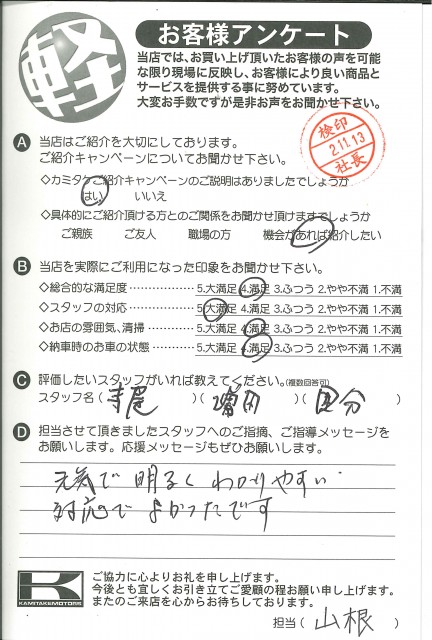 軽
お客様アンケート
当店では、お買い上げ頂いたお客様の声を可能
な限り現場に反映し、お客様により良い商品と
サービスを提供する事に努めています。
大変お手数ですが是非お声をお聞かせ下さい。
検印
2.11.13
社長
A 当店はご紹介を大切にしております。
ご紹介キャンペーンについてお聞かせ下さい。
◇カミタケご紹介キャンペーンのご説明はありましたでしょうか
はい いいえ
◇具体的にご紹介頂ける方とのご関係をお聞かせ頂けますでしょうか
ご親族 ご友人 職場の方 機会があれば紹介したい
B 当店を実際にご利用になった印象をお聞かせ下さい。
◇総合的な満足度 5.大満足 4.満足 3.ふつう 2.やや不満 1.不満
◇スタッフの対応 5.大満足 4.満足 3.ふつう 2.やや不満 1.不満
◇お店の雰囲気、清掃 5.大満足 4.満足 3.ふつう 2.やや不満 1.不満
◇納車時のお車の状態 5.大満足 4.満足 3.ふつう 2.やや不満 1.不満
C 評価したいスタッフがいれば教えてください。(複数回答可)
スタッフ名( 寺尾 )( )( 国分 )
D 担当させて頂きましたスタッフへのご指摘、ご指導メッセージを
お願いします。応援メッセージもぜひお願いします。
元気で 明るく わかりやすい
対応で よかったです
K
KAMITAKEMOTORS
ご協力に心よりお礼を申し上げます。
今後とも宜しくお引き立てご愛顧の程お願い申し上げます。
またのご来店を心からお待ちしております。
担当( 山根 )